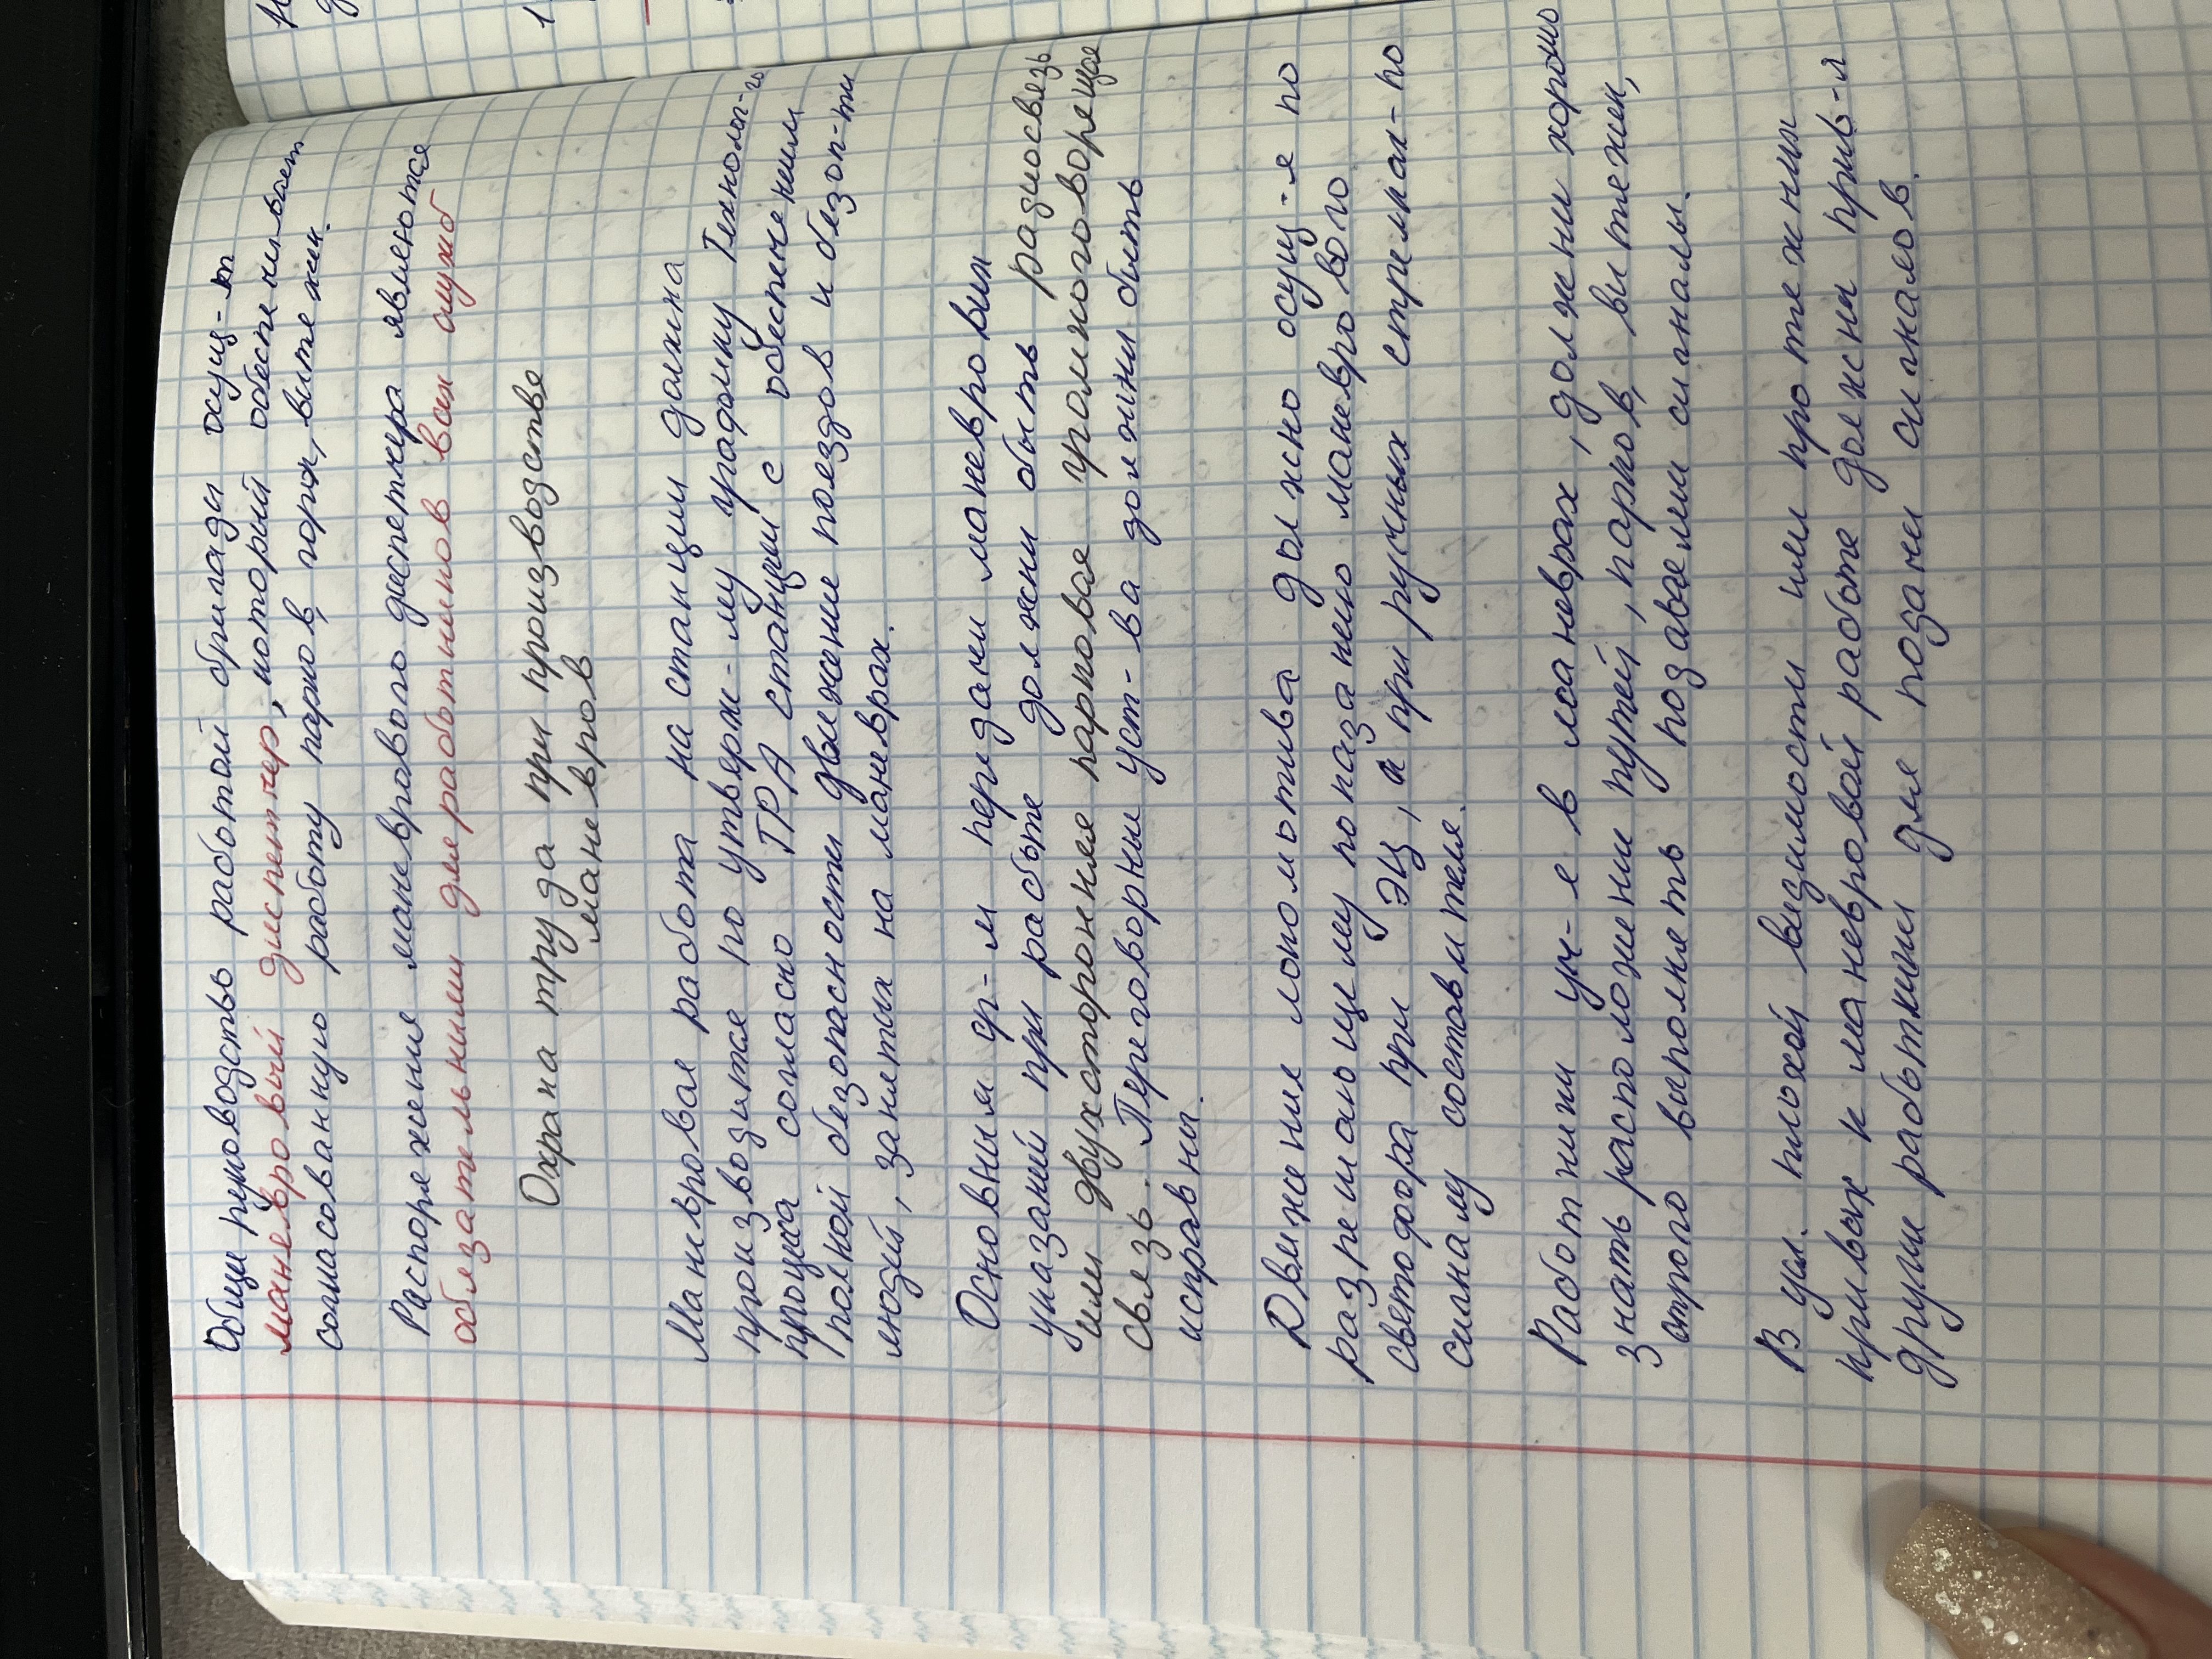 Общее руководство работой бригады осущ-т
маневровый диспетчер, который обеспечивает
согласованную работу парков, горки, вытяжки.
Распоряжения маневрового диспетчера являются
обязательными для работников всех служб
Охрана труда при производстве
маневров
Маневровая работа на станции должна
производится по утверж-му градику Технолог-го
процесса согласно ТРА станции с обеспечением
полной безопасности движение поездов и безоп-ти
людей, занятых на маневрах.
Основным ср-м передачи маневровых
указаний при работе должны быть радиосвязь
или двухсторонняя парковая громкоговорящая
связь. Переговорные уст-ва должны быть
исправны.
Движение локомотива должно осущ-я по
разрешающему показанию маневрового
светофора при ЭЦ, а при ручных стрелках-по
сигналу составителя.
Работники уч-е в маневрах, должны хорошо
знать расположении путей, парков, вытяжек,
строго выполнять подаваемы сигналы.
В усл. плохой видимости или протяжных
кривых к маневровой работе должны прив-я
други работники для подачи сигналов.